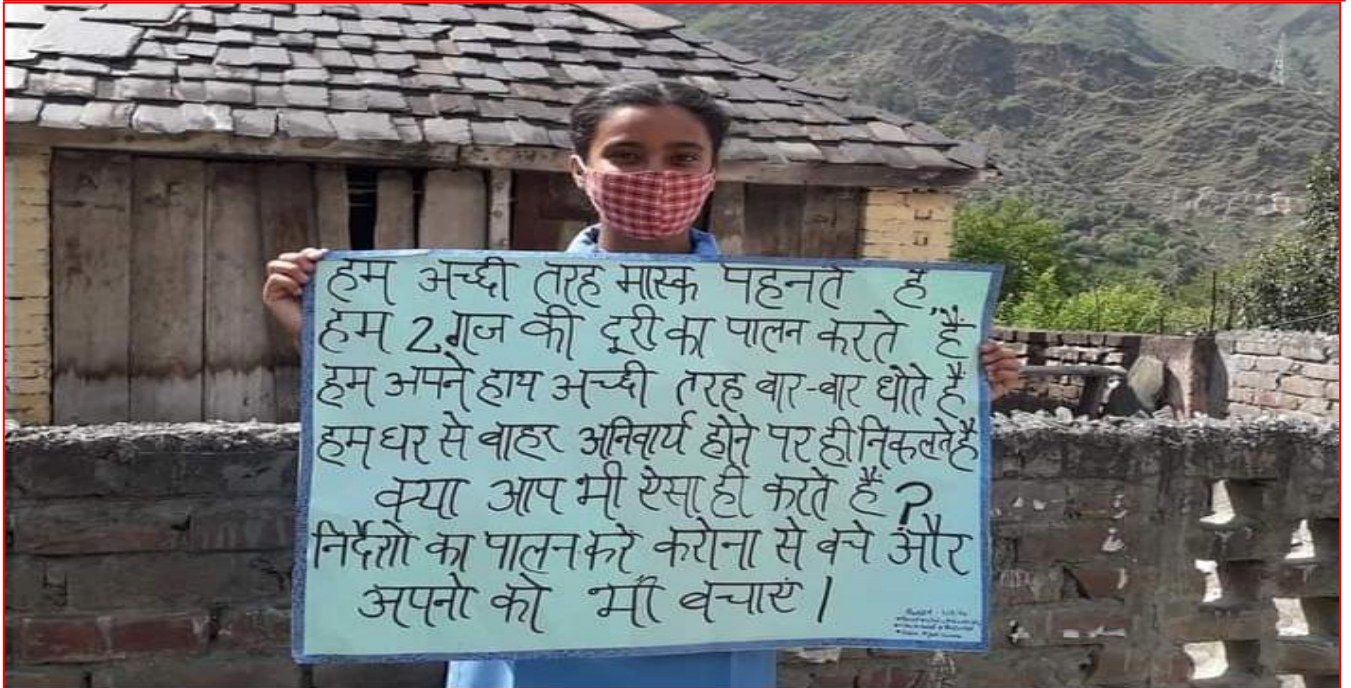 हम अच्छी तरह मास्क पहनते है,
हम 2 गज की दूरी का पालन करते हैं
हम अपने हाथ अच्छी तरह बार-बार धोते हैं
हम घर से बाहर अनिवार्य होने पर ही निकलते हैं
क्या आप भी ऐसा ही करते हैं ?
निर्देशो का पालन करे करोना से बचे और
अपनो को भी बचाएं ।